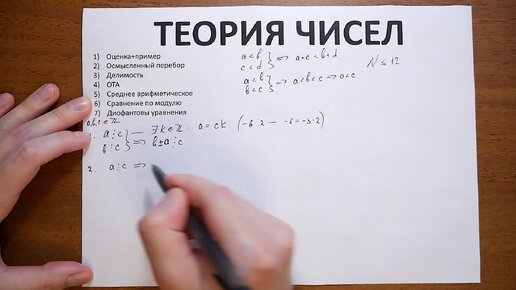 ТЕОРИЯ ЧИСЕЛ
1) Оценка+пример
2) Осмысленный перебор
3) Делимость
4) ОТА
5) Среднее арифметическое
6) Сравнение по модулю
7) Диофантовы уравнения
a<b
c<d } => a+c<b+d
a<b
b<c } => a<b<c => a<c
N ≤ 12
a,b,c∈ℤ
1. a⋮c } — ∃k∈ℤ: a=ck (-6⋮2 — -6=-3·2)
b⋮c } => b±a⋮c
2. a⋮c =>